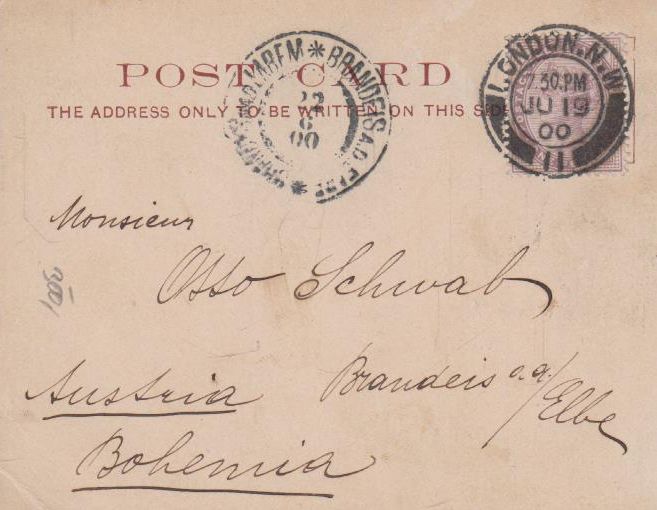 POST CARD
THE ADDRESS ONLY TO BE WRITTEN ON THIS SIDE
BRANDEIS A.D. ELBE
22
6
00
LONDON.N.W
7 30.PM
JU 19
00
11
Monsieur
Otto Schwab
Austria Brandeis a.d./Elbe
Bohemia